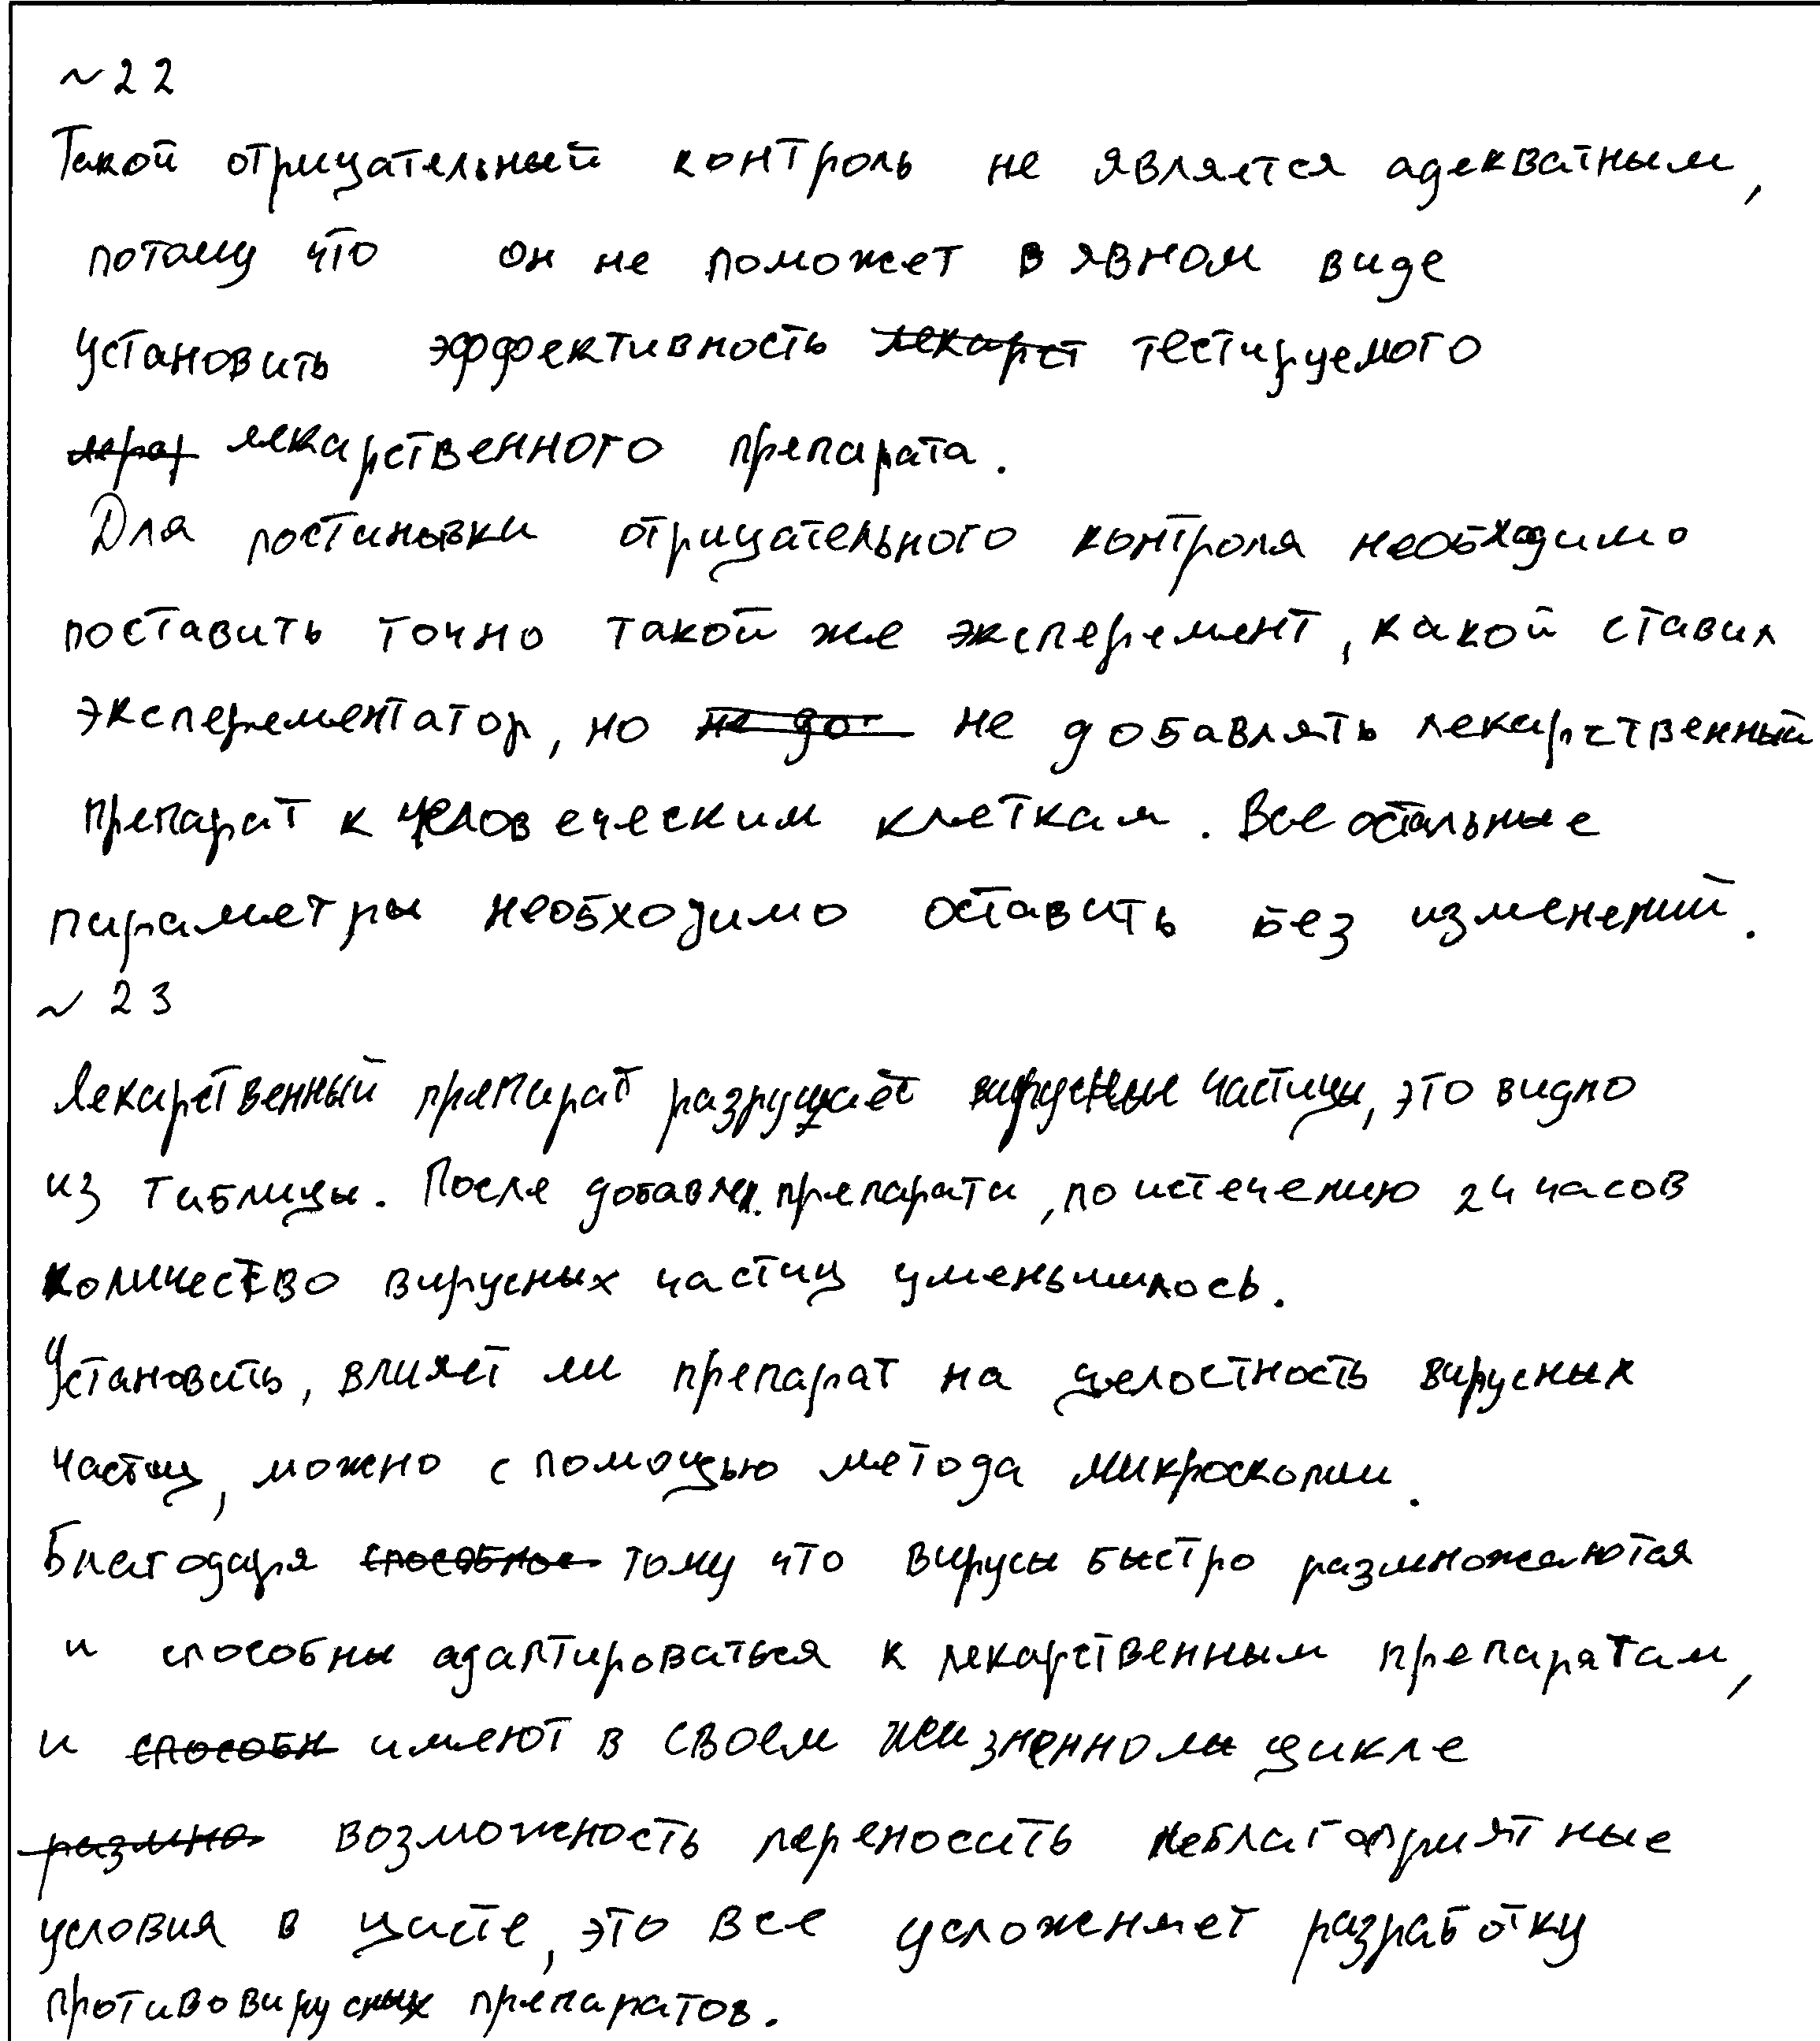 ~22
Такой отрицательный контроль не является адекватным,
потому что он не поможет в явном виде
установить эффективность лекарст тестируемого
лекарственного препарата.
Для постановки отрицательного контроля необходимо
поставить точно такой же эксперемент, какой ставил
эксперементатор, но не до не добавлять лекарственный
препарат к человеческим клеткам. Все остальные
параметры необходимо оставить без изменений.
~ 23
Лекарственный препарат разрушает вирусные частицы, это видно
из таблицы. После добавлен. препарата, по истечению 24 часов
количество вирусных частиц уменьшилось.
Установить, влияет ли препарат на целостность вирусных
частиц, можно с помощью метода микроскопии.
Благодаря способнос тому что вирусы быстро размножаются
и способны адаптироваться к лекарственным препаратам,
и способн имеют в своем жизненном цикле
размно возможность переносить неблагоприятные
условия в цисте, это все усложеняет разработку
противовирусных препаратов.